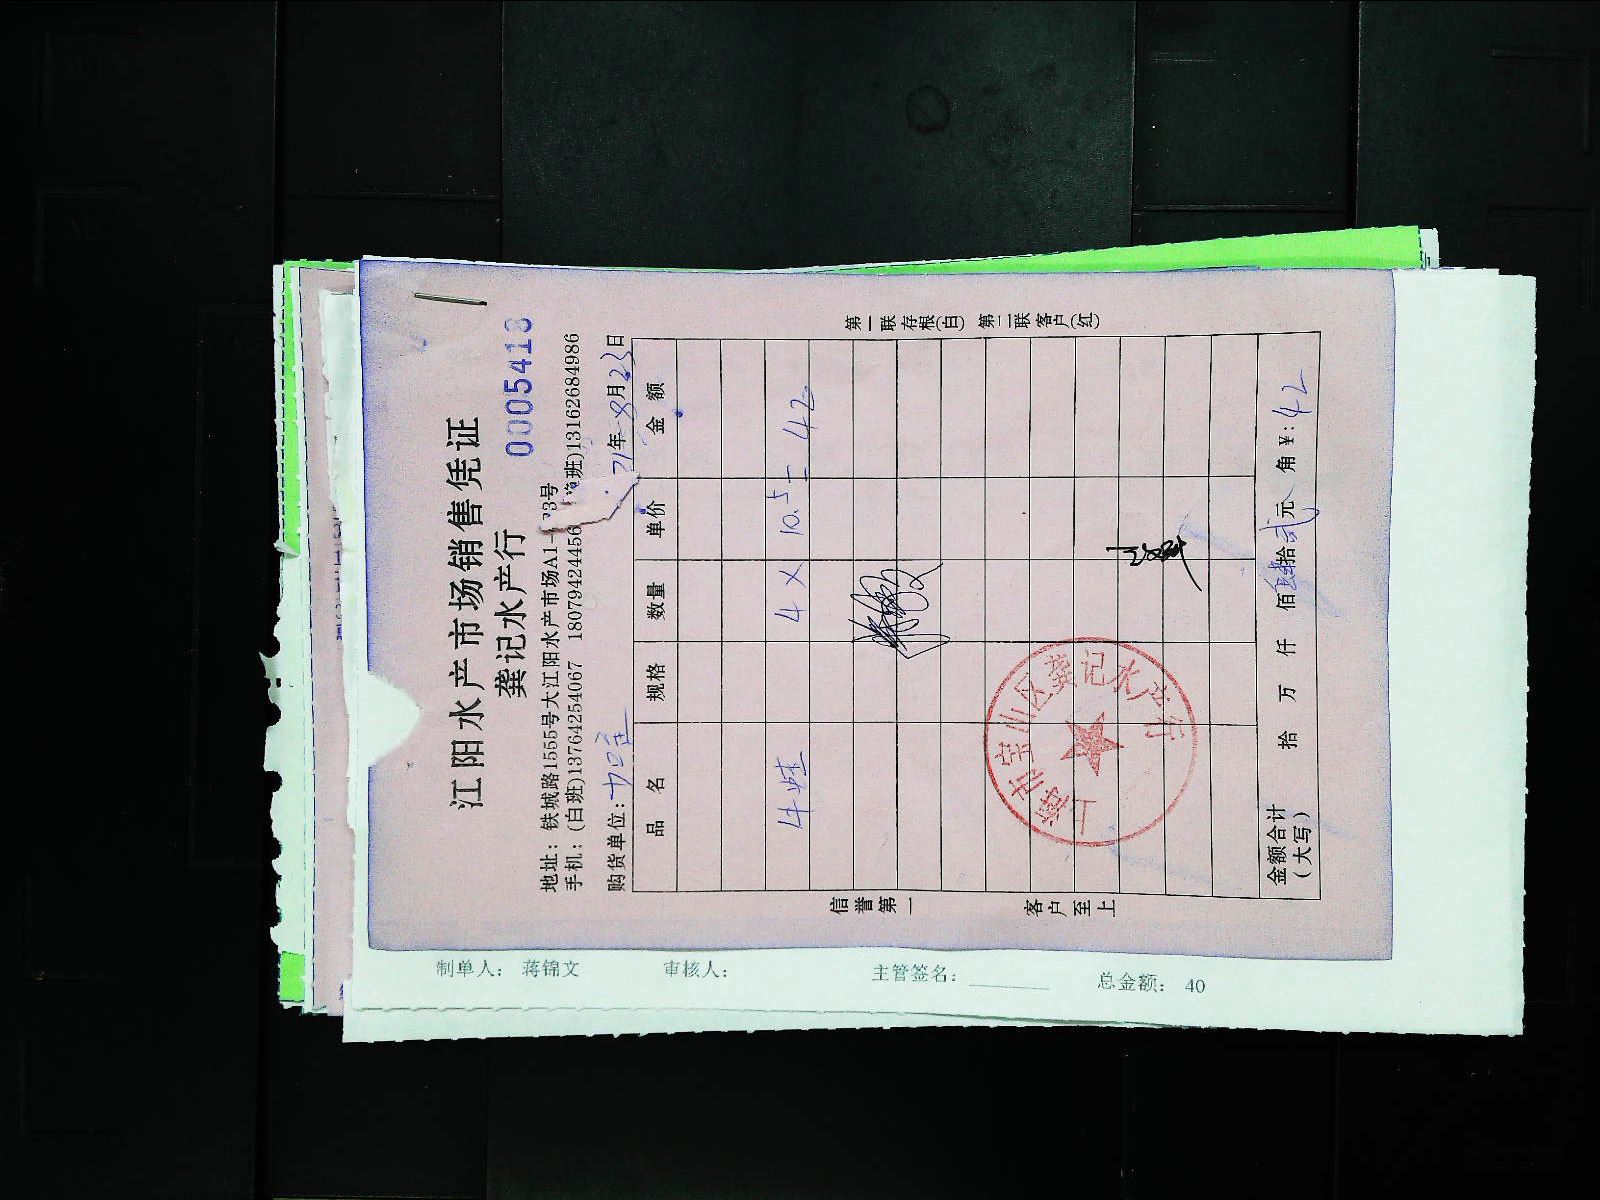 江阳水产市场销售凭证
龚记水产行
0005413
地址：铁城路1555号大江阳水产市场A1-
3号
手机：(白班)13764254067 18079424456
班)13162684986
购货单位：
21年8月23日
品名 规格 数量 单价 金额
牛蛙 4 × 10.5 = 42
上海市宝山区龚记水产行
金额合计
(大写)
拾 万 仟 佰 肆拾贰元 角 ¥：42
信誉第一 客户至上
第一联存根(白) 第二联客户(红)
制单人： 蒋锦文 审核人： 主管签名： 总金额： 40